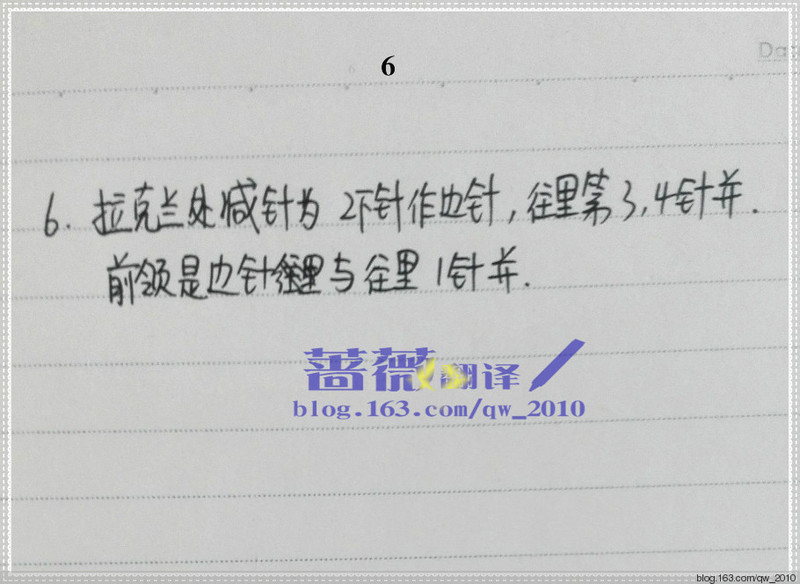 Da
6
6. 拉克兰处减针为 2下针作边针，往里第3,4针并.
前领是边针与往里 1针并.
蔷薇翻译
blog.163.com/qw_2010
blog.163.com/qw_2010